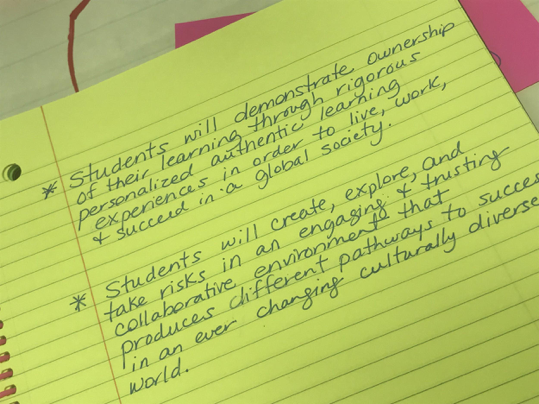 * Students will demonstrate ownership
of their learning through rigorous
personalized authentic learning
experiences in order to live, work,
& succeed in a global society.
* Students will create, explore, and
take risks in an engaging & trusting
collaborative environment that
produces different pathways to success
in an ever changing culturally diverse
world.